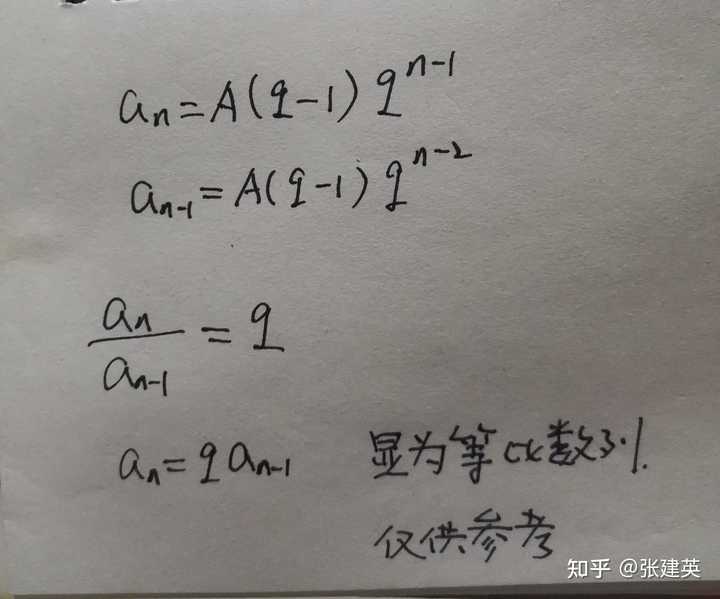 aₙ=A(q-1)qⁿ⁻¹
aₙ₋₁=A(q-1)qⁿ⁻²
aₙ/aₙ₋₁=q
aₙ=qaₙ₋₁ 显为等比数列.
仅供参考
知乎 @张建英